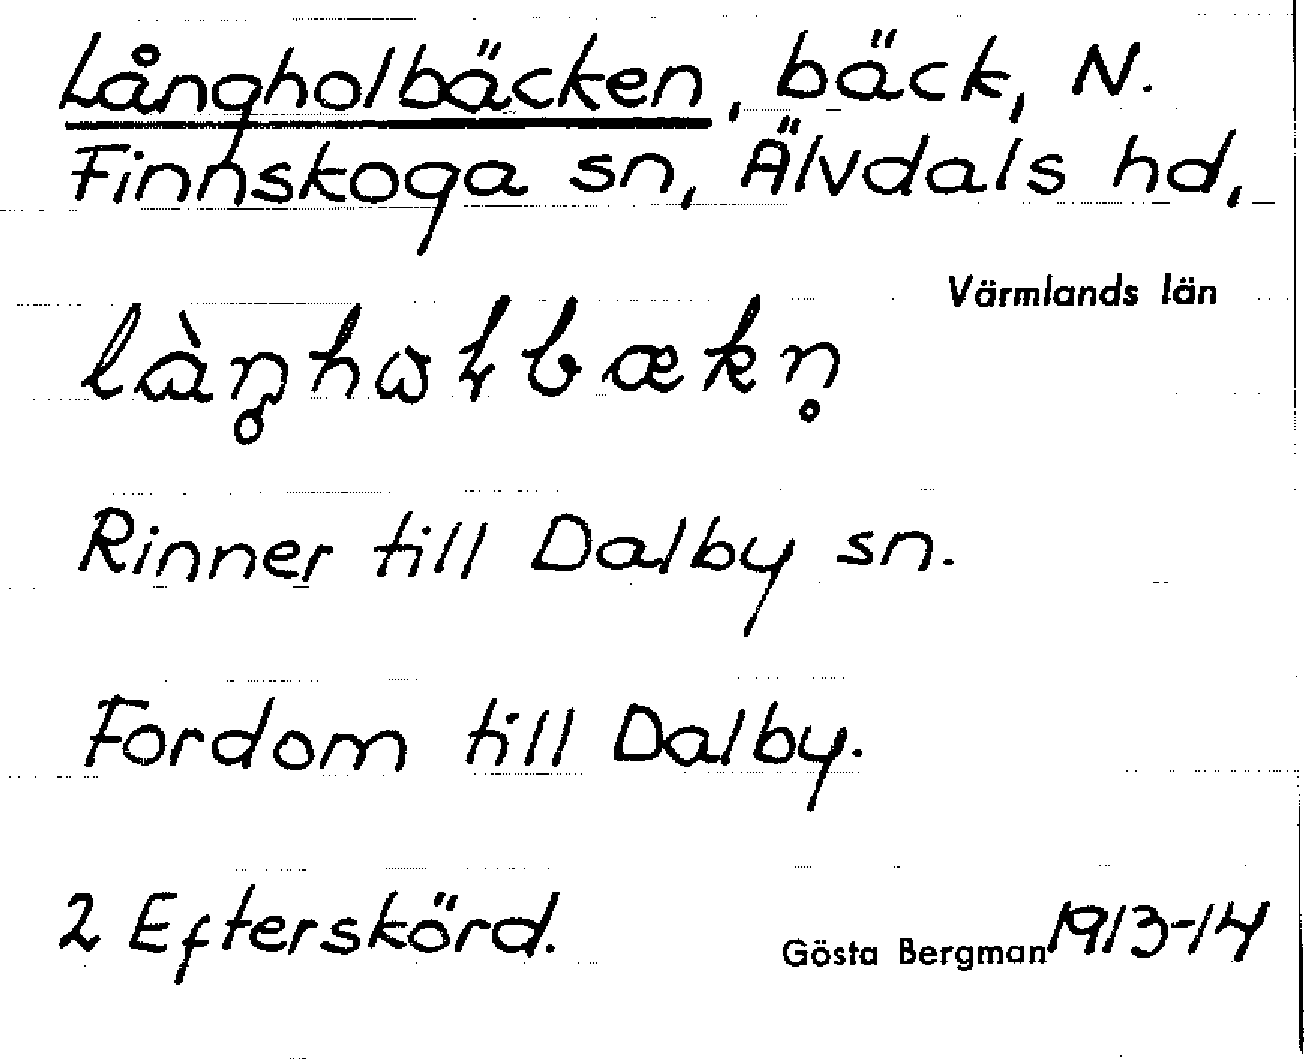 Långholbäcken, bäck, N.
Finnskoga sn, Älvdals hd,
Värmlands län
Rinner till Dalby sn.
Fordom till Dalby.
2 Efterskörd.
Gösta Bergman 1913-14